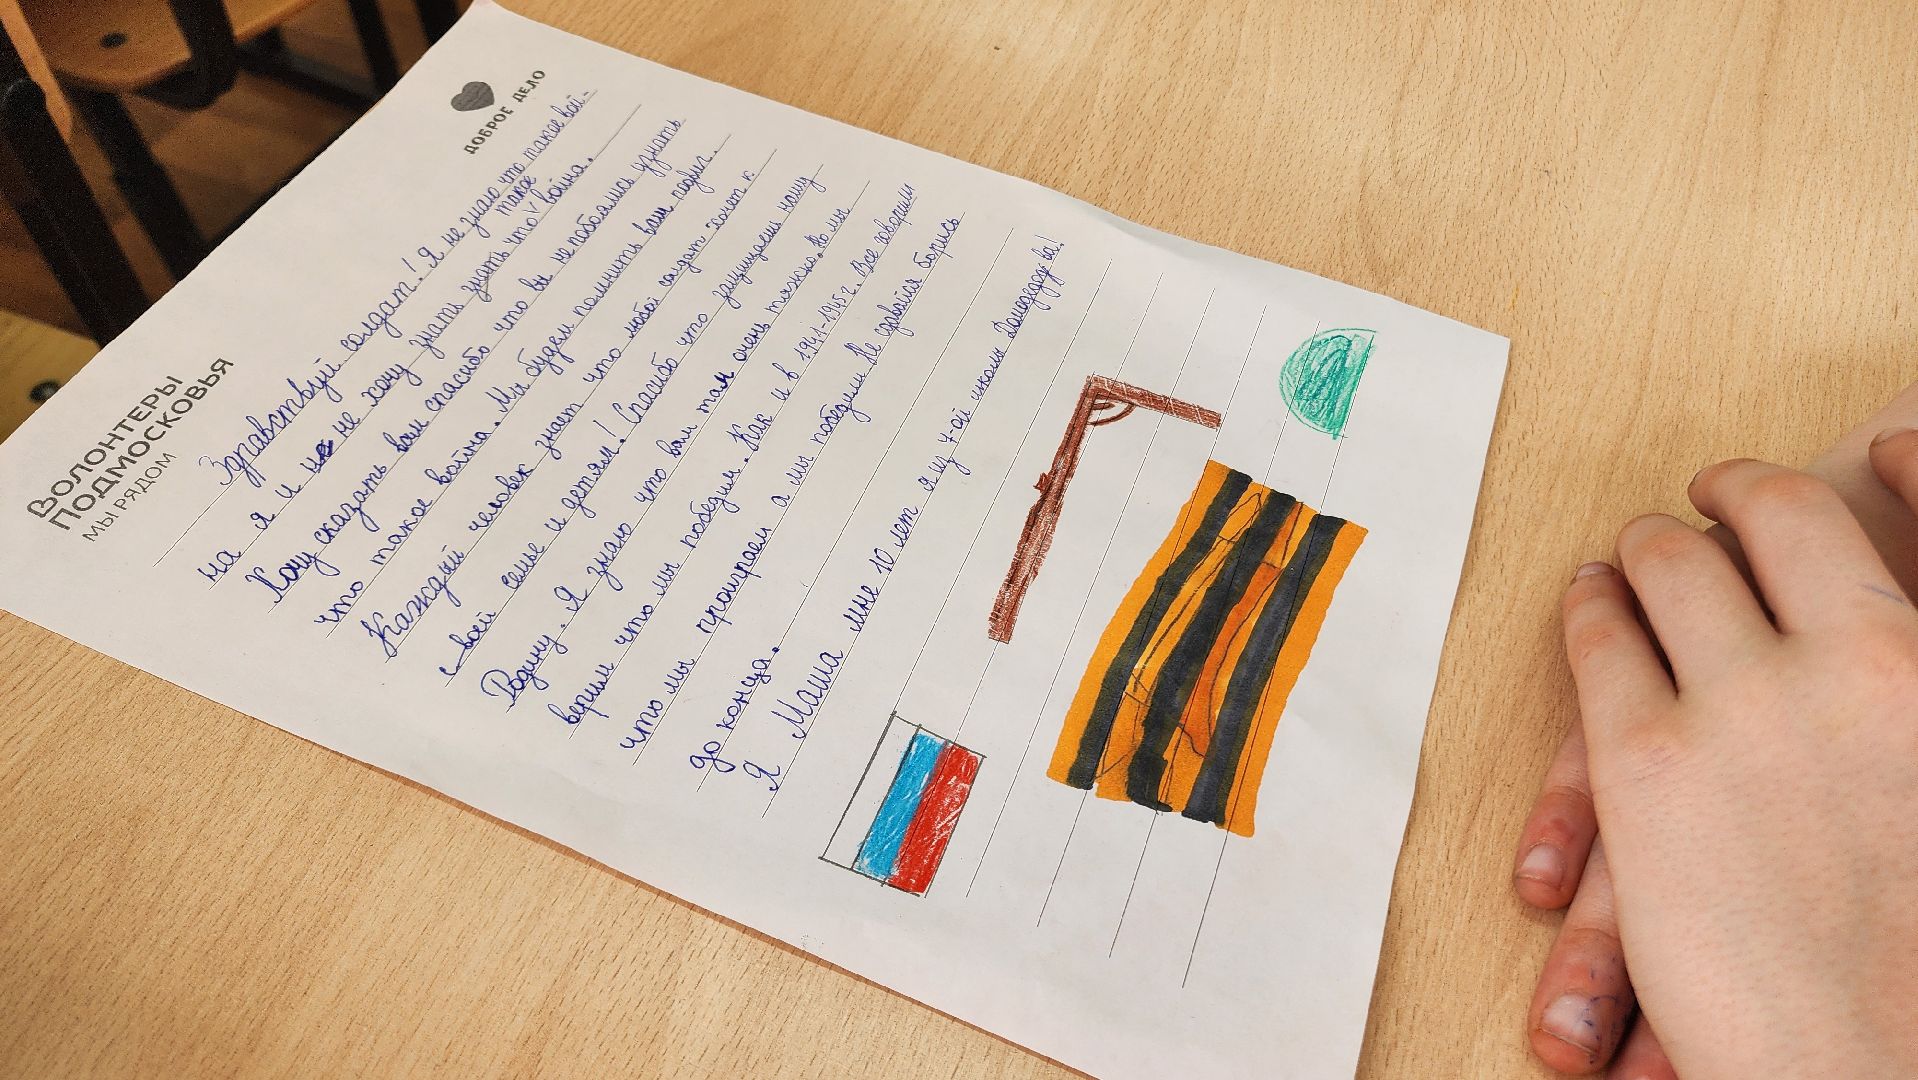 ВОЛОНТЕРЫ
ПОДМОСКОВЬЯ
МЫ РЯДОМ
ДОБРОЕ ДЕЛО
Здравствуй солдат! Я не знаю что такое вой-
на я и не хочу знать знать что такое война.
Хочу сказать вам спасибо что вы не побоялись узнать
что такое война. Мы будем помнить ваш подвиг.
Каждый человек знает что любой солдат хочет к
своей семье и детям! Спасибо что защищаешь нашу
Родину. Я знаю что вам там очень тяжко. Но мы
верим что мы победим. Как и в 1941-1945г. Все говорили
что мы проиграем а мы победили Не сдавайся борись
до конца.
Я Маша мне 10 лет Я из 4-ой школы Домодедова!